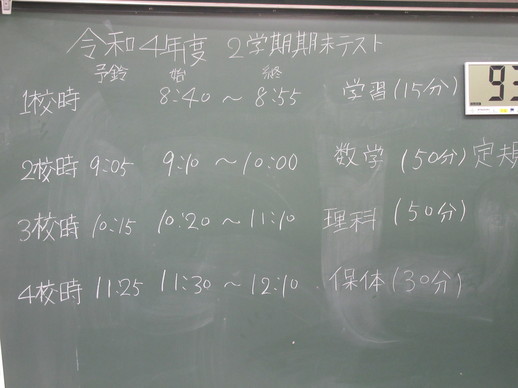 令和4年度 2学期期末テスト
予鈴 始 終
1校時 8:40 ～ 8:55 学習(15分)
2校時 9:05 9:10 ～ 10:00 数学(50分)定規
3校時 10:15 10:20 ～ 11:10 理科(50分)
4校時 11:25 11:30 ～ 12:10 保体(30分)
93